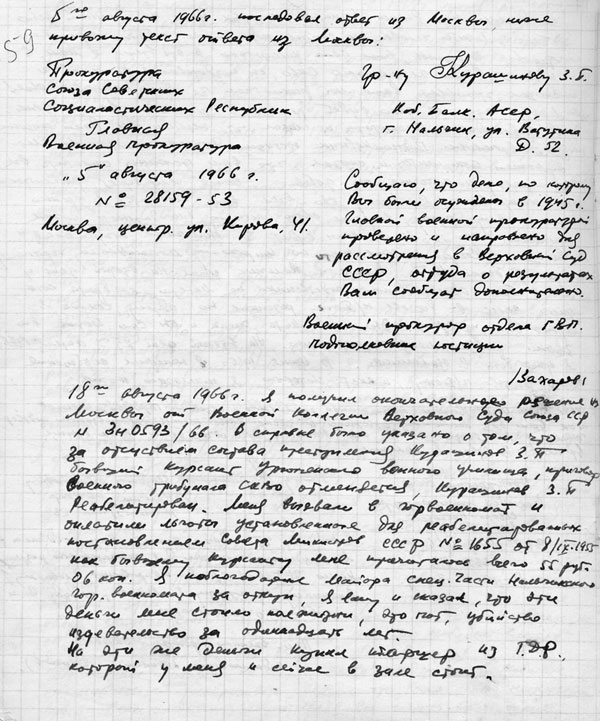 59
5го августа 1966г. последовал ответ из Москвы, ниже
привожу текст ответа из Москвы:
Прокуратура
Союза Советских
Социалистических Республик
Главная
Военная прокуратура
„5" августа 1966 г.
№ 28159-53
Москва, центр. ул. Кирова, 41.
Гр-ну Курашинову З.П.
Каб. Балк. Асср,
г. Нальчик, ул. Ватутина
Д. 52.
Сообщаю, что дело, по которому
Вы были осуждены в 1945 г.
Главной военной прокуратурой
проверено и направлено для
рассмотрения в Верховный Суд
СССР, откуда о результатах
Вам сообщат дополнительно.
Военный прокурор отдела ГВП.
подполковник юстиции
/Захаров/
18го августа 1966 г. я получил окончательное решение из
Москвы от Военной Коллегии Верховного Суда Союза ССР
N 3н0593/66. В справке было указано о том, что
за отсутствием состава преступления Курашинов З.П
бывший курсант военного училища, приговор
Военного трибунала отменяется, Курашинов З.П
Реабелитирован. Меня вызвали в горвоенкомат и
оплатили льготы установленное для реабелитированых
постановлением Совета Министров СССР №1655 от 8/IX-1955
как бывшему курсанту мне причиталось всего 55 руб
06 коп. Я поблагодарил майора спец. части Нальчикского
гор. военкомата за я ему и сказал, что эти
деньги мне стоило полжизни, это пот, убийство
издевательство за одинадцать лет.
На эти же деньги купил из Г.Д.Р.,
который у меня и сейчас в зале стоит.